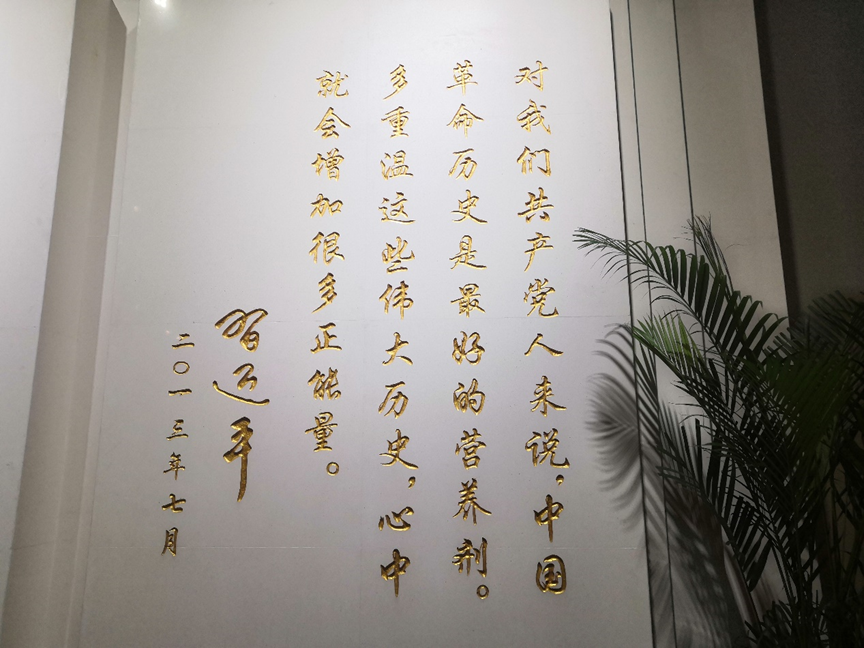 对我们共产党人来说，中国
革命历史是最好的营养剂。
多重温这些伟大历史，心中
就会增加很多正能量。
习近平
二〇一三年七月